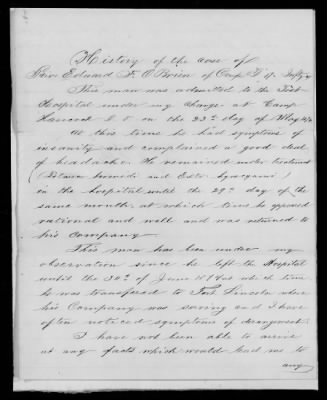 History of the case of
Priv Edward F. O'Brien of Comp "F" 17. Infty
This man was admitted to the Post
Hospital under my charge at Camp
Hancock D T on the 23rd day of May
At this time he had symptoms of
insanity and complained a good deal
of headache. He remained under treatment
(Potassa bromide and Extr. hyoscyami)
in the hospital until the 29th day of the
same month, at which time he appeared
rational and well and was returned to
his company.
This man has been under my
observation since he left the Hospital
until the 30th of June at which time
he was transferred to Fort Lincoln where
his Company was serving and I have
often noticed symptoms of derangement.
I have not been able to arrive
at any facts which would lead me to
any